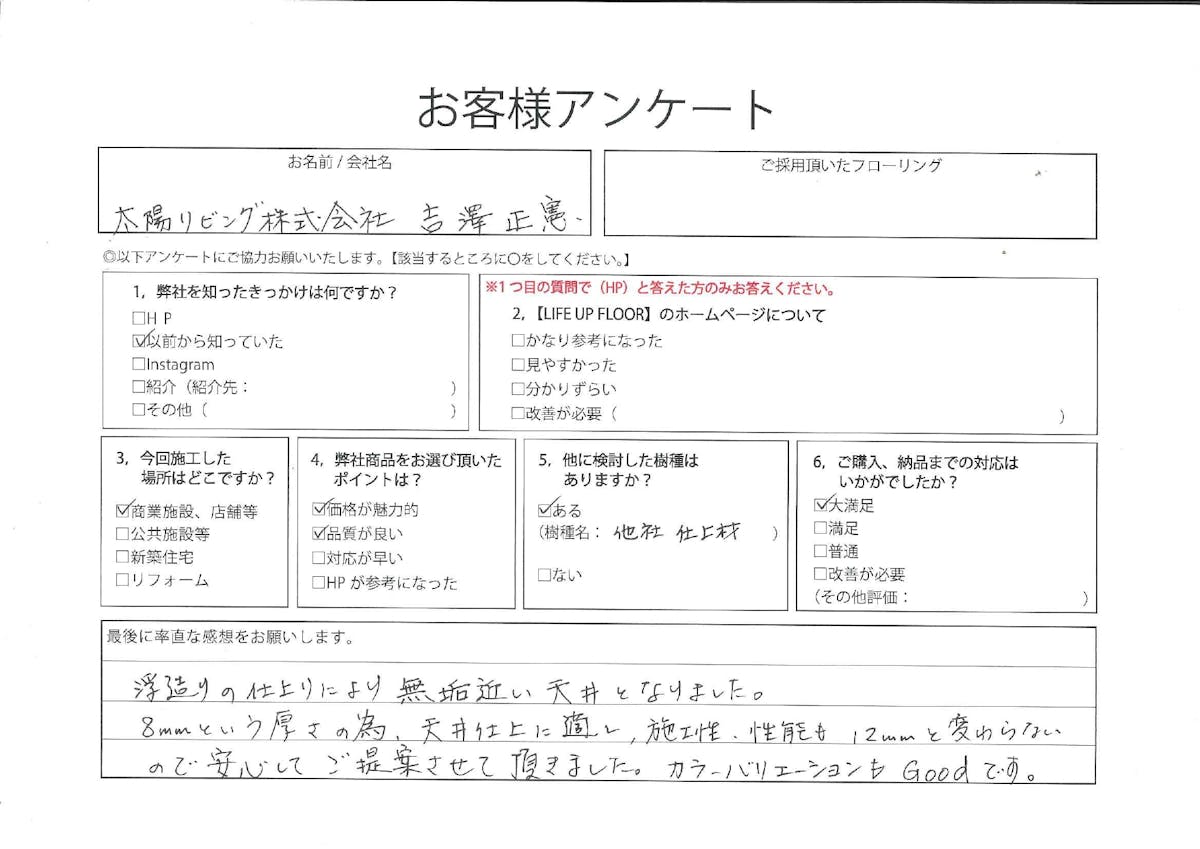 お客様アンケート
お名前 / 会社名
太陽リビング株式会社 吉澤正憲
ご採用頂いたフローリング
◎以下アンケートにご協力お願いいたします。【該当するところに〇をしてください。】
1, 弊社を知ったきっかけは何ですか？
□H P
☑以前から知っていた
□Instagram
□紹介（紹介先： ）
□その他（ ）
※1つ目の質問で（HP）と答えた方のみお答えください。
2, 【LIFE UP FLOOR】のホームページについて
□かなり参考になった
□見やすかった
□分かりずらい
□改善が必要（ ）
3, 今回施工した
場所はどこですか？
☑商業施設、店舗等
□公共施設等
□新築住宅
□リフォーム
4, 弊社商品をお選び頂いた
ポイントは？
☑価格が魅力的
☑品質が良い
□対応が早い
□HP が参考になった
5, 他に検討した樹種は
ありますか？
☑ある
（樹種名： 他社 仕上材 ）
□ない
6, ご購入、納品までの対応は
いかがでしたか？
☑大満足
□満足
□普通
□改善が必要
（その他評価： ）
最後に率直な感想をお願いします。
浮造りの仕上りにより無垢近い天井となりました。
8mmという厚さの為、天井仕上に適し、施工性、性能も12mmと変わらない
ので安心してご提案させて頂きました。カラーバリエーションもGoodです。